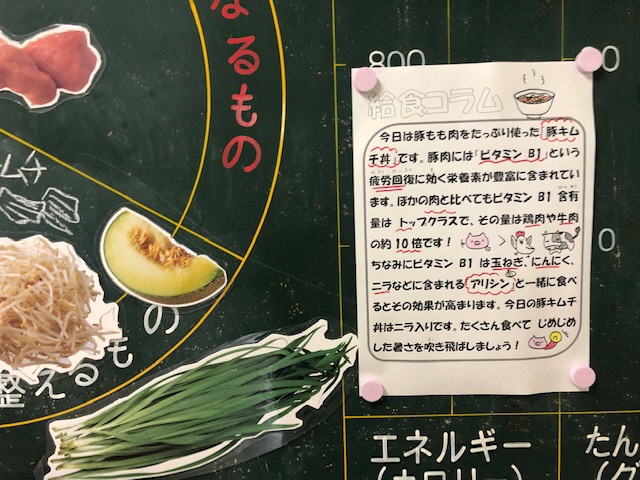 なるもの
ムチ
整えるもの
800
0
0
給食コラム
今日は豚もも肉をたっぷり使った「豚キム
チ丼」です。豚肉には「ビタミン B1」という
疲労回復に効く栄養素が豊富に含まれてい
ます。ほかの肉と比べてもビタミン B1 含有
量は トップクラスで、その量は鶏肉や牛肉
の約 10 倍です！ >
ちなみにビタミン B1 は玉ねぎ、にんにく、
ニラなどに含まれる「アリシン」と一緒に食べ
るとその効果が高まります。今日の豚キムチ
丼はニラ入りです。たくさん食べて じめじめ
した暑さを吹き飛ばしましょう！
エネルギー
(カロリー)
たん
(グ